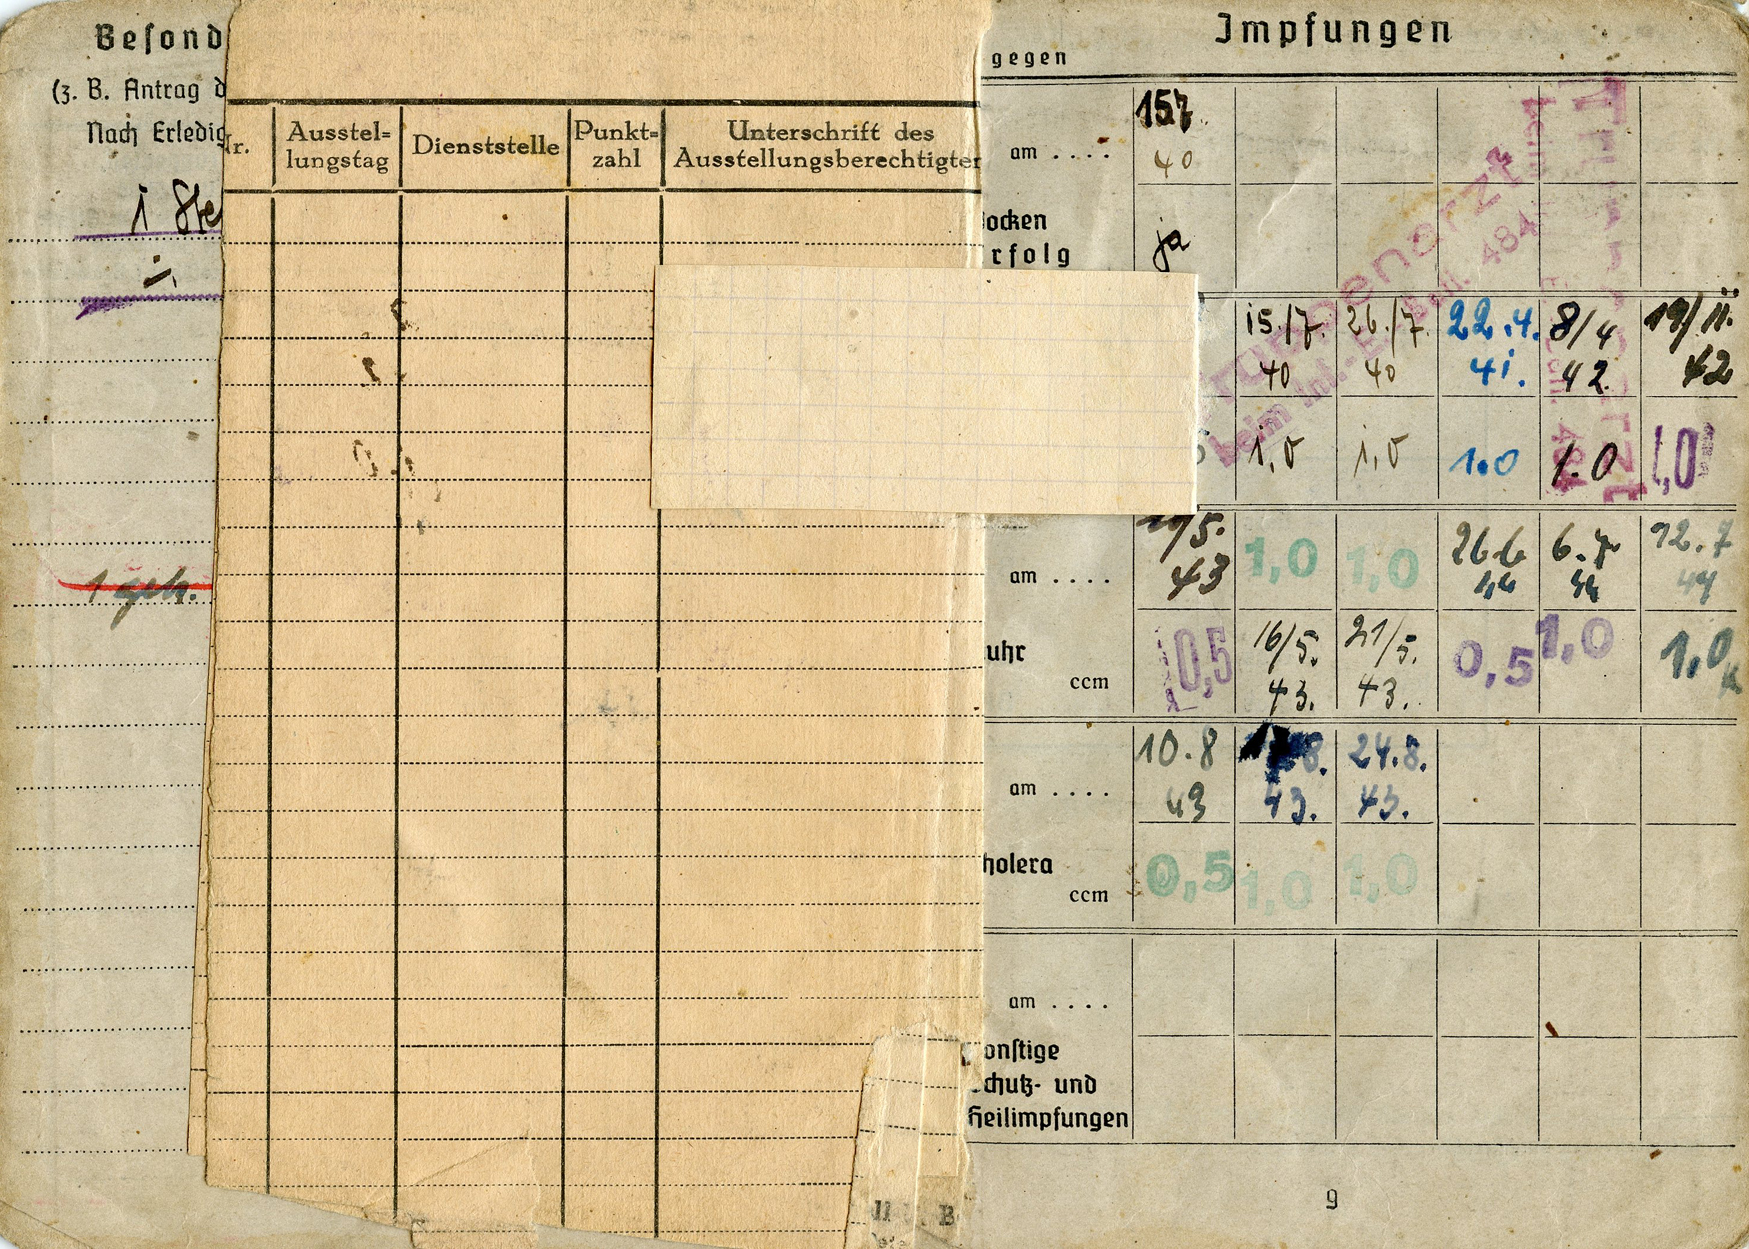 Besond
(z. B. Antrag d
Nach Erledig
1 Ste
1 geh.
Nr.
Ausstel=
lungstag
Dienststelle
Punkt=
zahl
Unterschrift des
Ausstellungsberechtigten
Impfungen
gegen
am . . . .
157
40
ocken
rfolg
ja
15./7. 26./7. 22.4. 8/4 19/11.
40 40 41. 42 42
1,0 1,0 1.0 1.0 1,0
Truppenarzt
beim Inf.-
Batl. 484
Truppenarzt
am . . . .
/5. 1,0 1,0 26.6 6.7 12.7
43 44 44 44
uhr
ccm
0,5 16/5. 21/5. 0,5 1,0 1,0
43. 43.
am . . . .
10.8 8. 24.8.
43 43. 43.
holera
ccm
0,5 1,0 1,0
am . . . .
onstige
chutz- und
Heilimpfungen
9